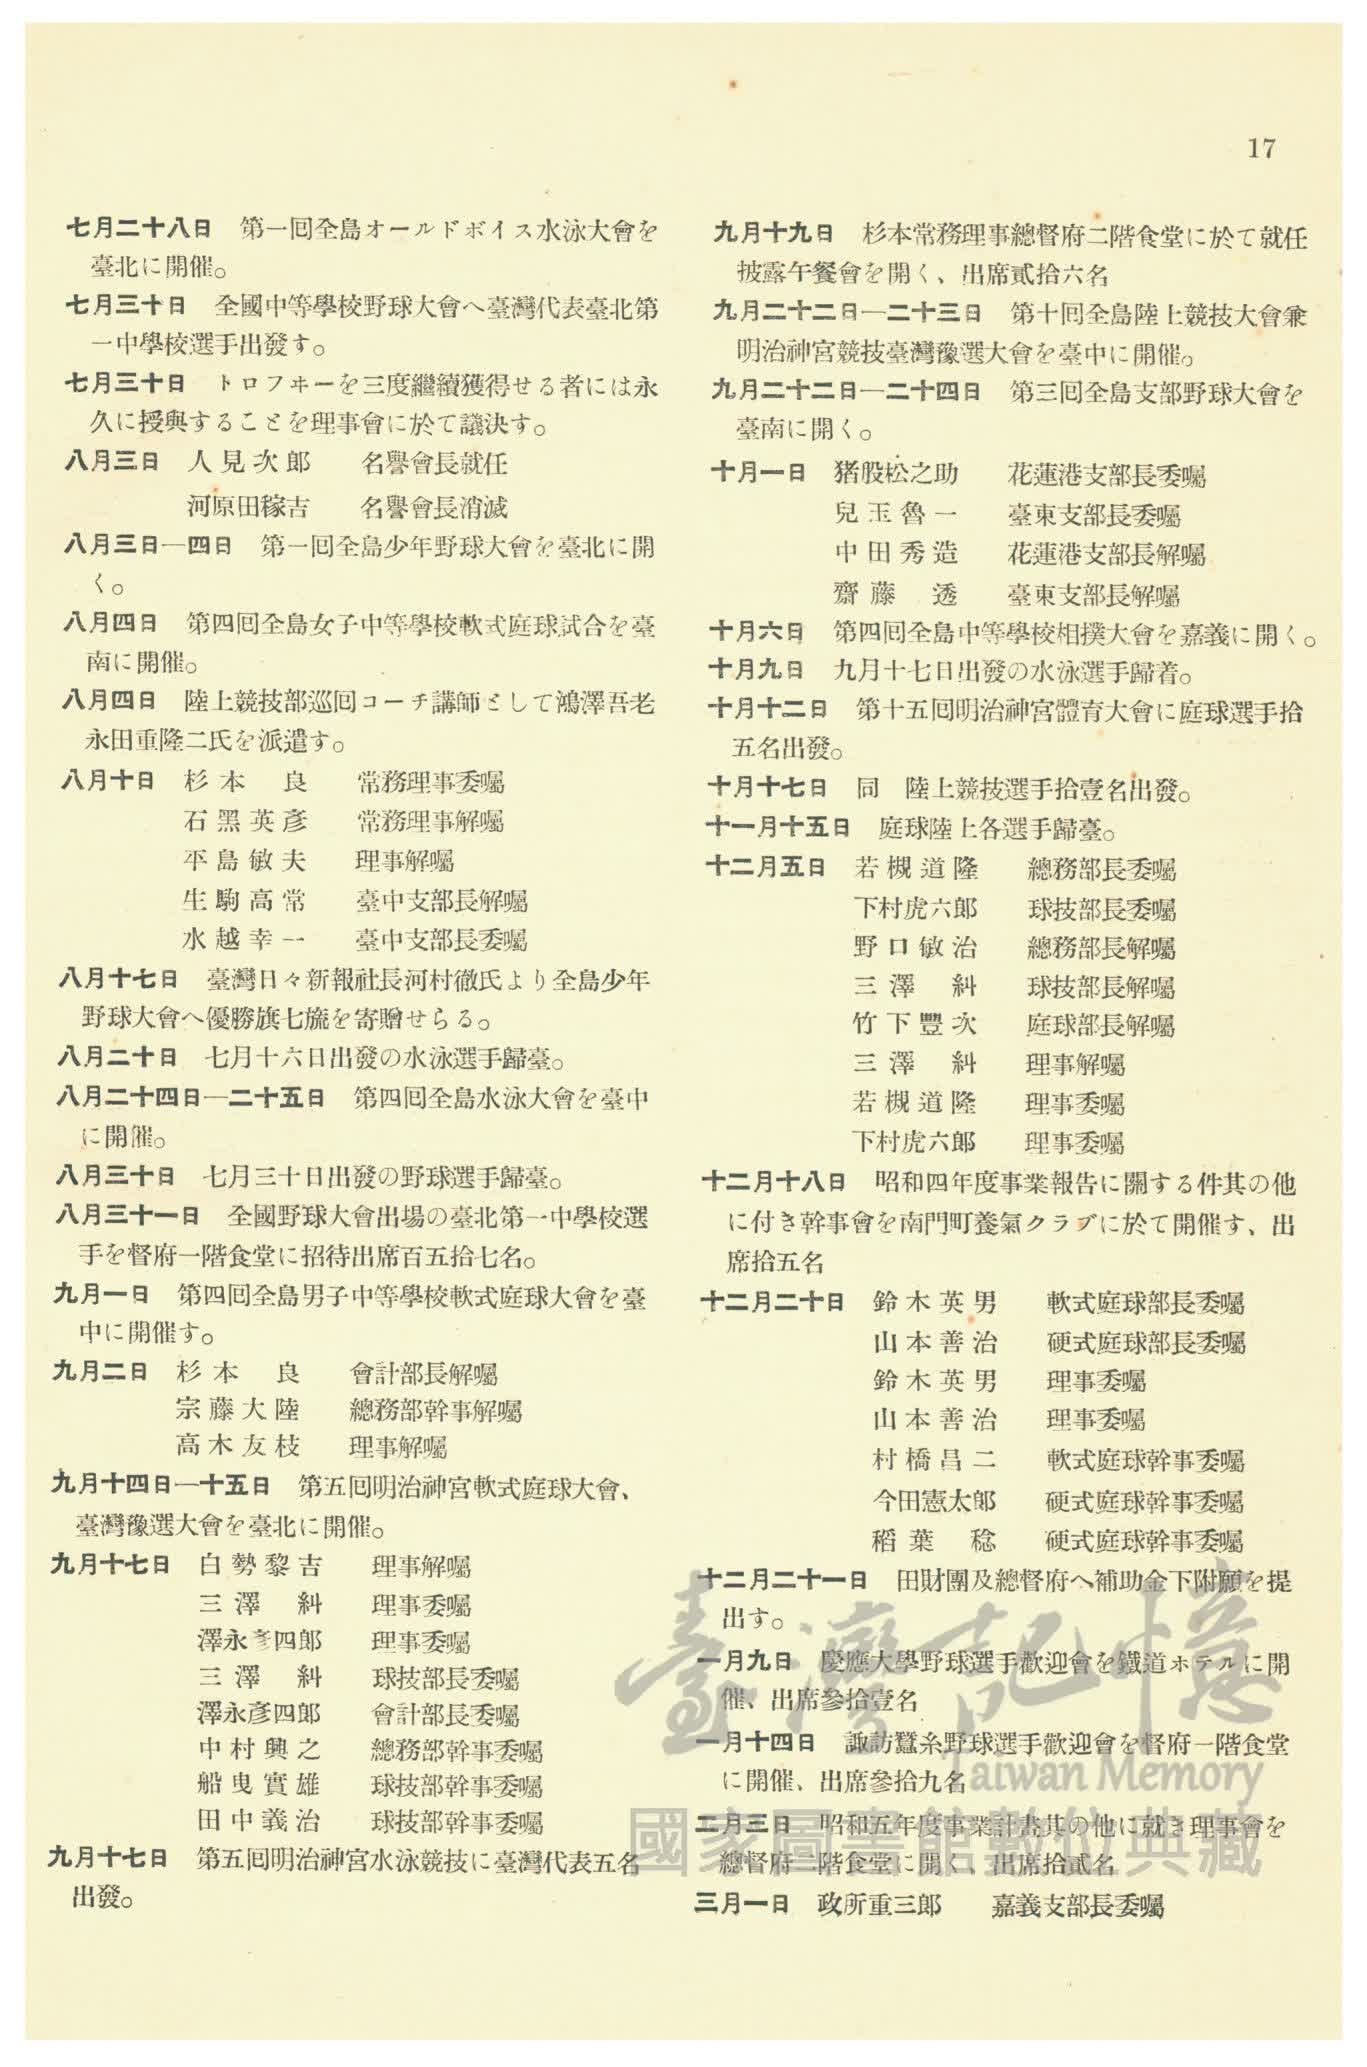 17
七月二十八日　第一回全島オールドボイス水泳大會を
臺北に開催。
七月三十日　全國中等學校野球大會へ臺灣代表臺北第
一中學校選手出發す。
七月三十日　トロフヰーを三度繼續獲得せる者には永
久に授與することを理事會に於て議決す。
八月三日　人見次郎　名譽會長就任
河原田稼吉　名譽會長消滅
八月三日―四日　第一回全島少年野球大會を臺北に開
く。
八月四日　第四回全島女子中等學校軟式庭球試合を臺
南に開催。
八月四日　陸上競技部巡回コーチ講師として鴻澤吾老
永田重隆二氏を派遣す。
八月十日　杉本　良　常務理事委囑
石黑英彥　常務理事解囑
平島敏夫　理事解囑
生駒高常　臺中支部長解囑
水越幸一　臺中支部長委囑
八月十七日　臺灣日々新報社長河村徹氏より全島少年
野球大會へ優勝旗七旒を寄贈せらる。
八月二十日　七月十六日出發の水泳選手歸臺。
八月二十四日―二十五日　第四回全島水泳大會を臺中
に開催。
八月三十日　七月三十日出發の野球選手歸臺。
八月三十一日　全國野球大會出場の臺北第一中學校選
手を督府一階食堂に招待出席百五拾七名。
九月一日　第四回全島男子中等學校軟式庭球大會を臺
中に開催す。
九月二日　杉本　良　會計部長解囑
宗藤大陸　總務部幹事解囑
高木友枝　理事解囑
九月十四日―十五日　第五回明治神宮軟式庭球大會、
臺灣豫選大會を臺北に開催。
九月十七日　白勢黎吉　理事解囑
三澤　糾　理事委囑
澤永彥四郎　理事委囑
三澤　糾　球技部長委囑
澤永彥四郎　會計部長委囑
中村興之　總務部幹事委囑
船曳實雄　球技部幹事委囑
田中義治　球技部幹事委囑
九月十七日　第五回明治神宮水泳競技に臺灣代表五名
出發。
九月十九日　杉本常務理事總督府二階食堂に於て就任
披露午餐會を開く、出席貳拾六名
九月二十二日―二十三日　第十回全島陸上競技大會兼
明治神宮競技臺灣豫選大會を臺中に開催。
九月二十二日―二十四日　第三回全島支部野球大會を
臺南に開く。
十月一日　猪股松之助　花蓮港支部長委囑
兒玉魯一　臺東支部長委囑
中田秀造　花蓮港支部長解囑
齋藤　透　臺東支部長解囑
十月六日　第四回全島中等學校相撲大會を嘉義に開く。
十月九日　九月十七日出發の水泳選手歸着。
十月十二日　第十五回明治神宮體育大會に庭球選手拾
五名出發。
十月十七日　同　陸上競技選手拾壹名出發。
十一月十五日　庭球陸上各選手歸臺。
十二月五日　若槻道隆　總務部長委囑
下村虎六郎　球技部長委囑
野口敏治　總務部長解囑
三澤　糾　球技部長解囑
竹下豐次　庭球部長解囑
三澤　糾　理事解囑
若槻道隆　理事委囑
下村虎六郎　理事委囑
十二月十八日　昭和四年度事業報告に關する件其の他
に付き幹事會を南門町養氣クラブに於て開催す、出
席拾五名
十二月二十日　鈴木英男　軟式庭球部長委囑
山本善治　硬式庭球部長委囑
鈴木英男　理事委囑
山本善治　理事委囑
村橋昌二　軟式庭球幹事委囑
今田憲太郞　硬式庭球幹事委囑
稻葉　稔　硬式庭球幹事委囑
十二月二十一日　田財團及總督府へ補助金下附願を提
出す。
一月九日　慶應大學野球選手歡迎會を鐵道ホテルに開
催、出席參拾壹名
一月十四日　諏訪蠶糸野球選手歡迎會を督府一階食堂
に開催、出席參拾九名
二月三日　昭和五年度事業計畫其の他に就き理事會を
總督府一階食堂に開く、出席拾貳名
三月一日　政所重三郎　嘉義支部長委囑
臺灣記憶
Taiwan Memory
國家圖書館數位典藏